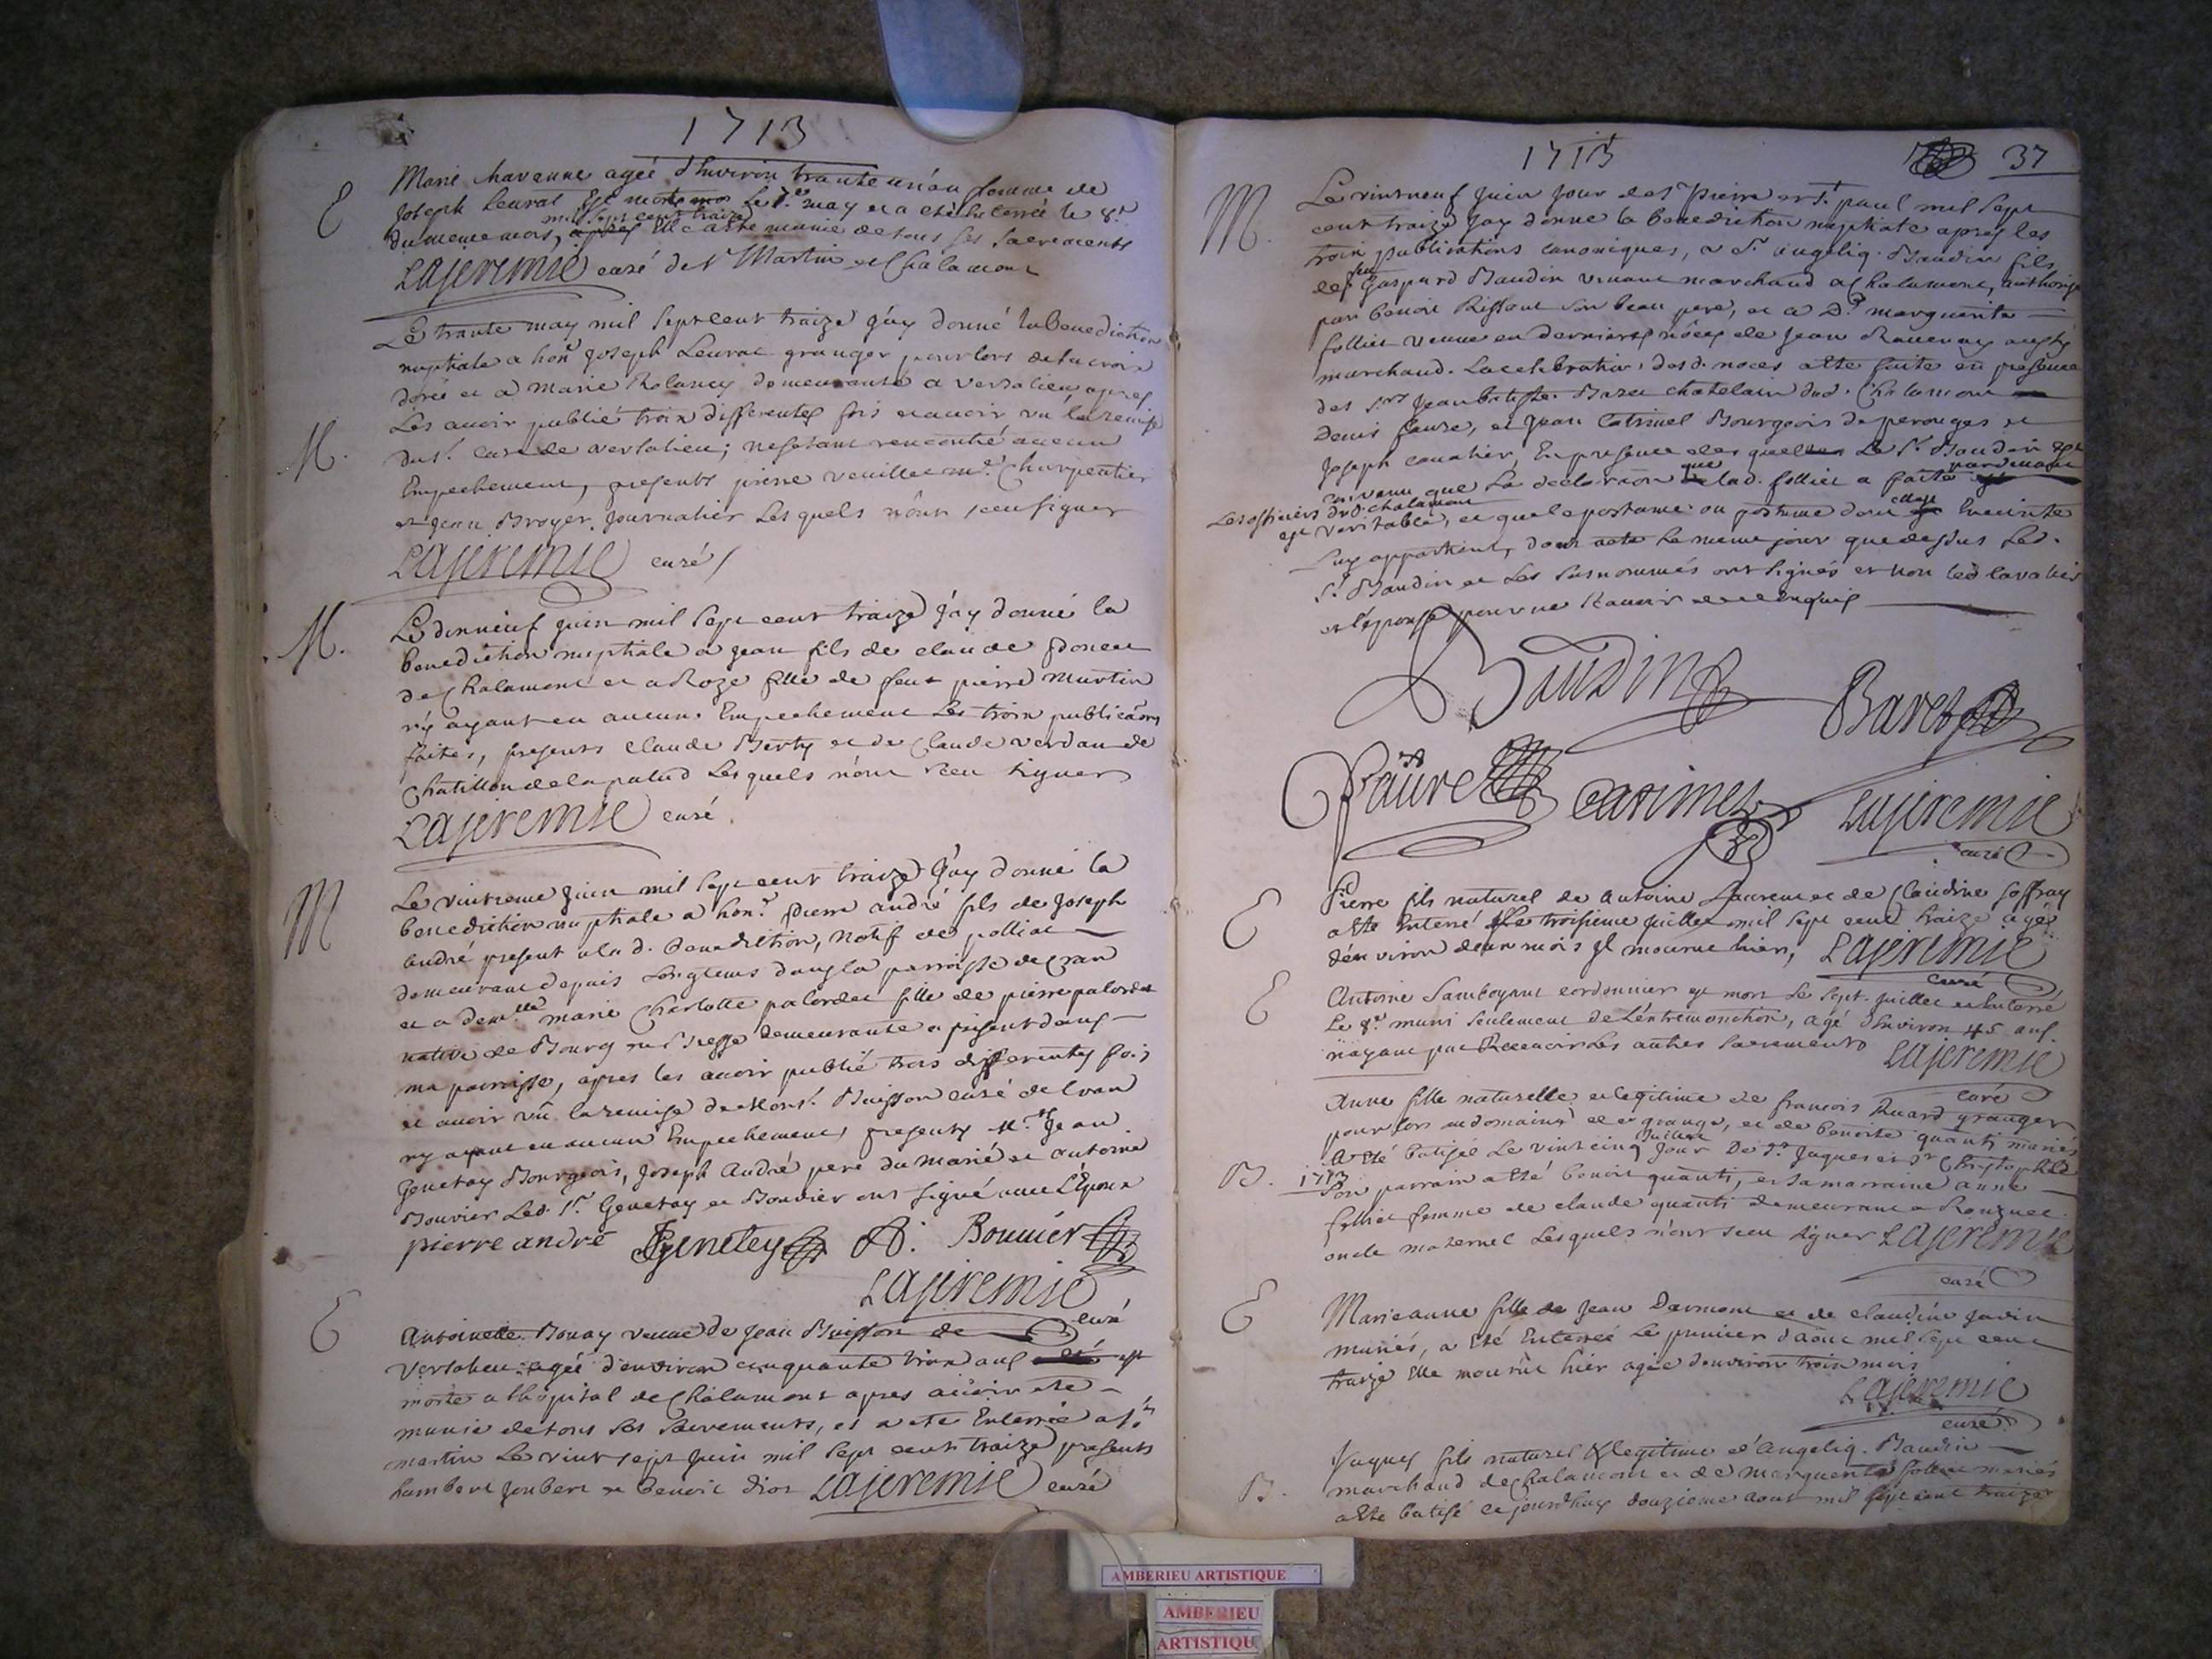 1713
E
Marie chavanne agée d'Environ trante un an femme de
Joseph Leurat Est morte le 7e may et a eté Enterrée le 8e
mil sept cent traize
du meme mois, Elle a esté munie de tous ses sacrements
LAJEREMIE curé de St Martin de Chalamont
M.
Le trante may mil sept cent traize j'ay donné la Benediction
nuptiale a hone Joseph Leurat granger pour lors de la croix
dorée et a Marie Rolancy demeurante a versalieu apres
Les avoir publié trois differentes fois et avoir vu la remise
du Sr. curé de versalieu; ne s'etant rencontré aucun
Empechement, presents pierre veuillet me. Charpentier
et Jean Broyer journalier Lesquels n'ont sceu signer
LAJEREMIE curé
M.
Le dixneuf juin mil sept cent traize j'ay donné la
benediction nuptiale a jean fils de claude poncet
de Chalamont et a Roze fille de feut pierre Martin
n'y ayant eu aucun Empechement Les trois publicãons
faites, presents claude Berty et de Claude verdan de
Chatillon de la palud Lesquels n'ont sceu signer
LAJEREMIE curé.
M
Le vintieme juin mil sept cent traize j'ay donné la
benediction nuptiale a hon.e pierre andré fils de Joseph
andré present a la d. benediction, Natif de polliat
demeurant depuis Longtems dans la parroisse de Cran
et a demlle marie Charlotte palordet fille de pierre palordet
native de Bourg en Bresse demeurante a present dans
ma parroisse, apres les avoir publié trois differentes fois
et avoir vû la remise de Mons.r Buisson curé de Cran
ny ayant eu aucun Empechement, presents Mr. Jean
Genetay Bourgeois, Joseph André pere du marié et antoine
Bouvier Led. Sr. Genetay et Bouvier ont signé avec L'Epoux
pierre andré Genetey A. Bouvier
LAJEREMIE
curé
E
Antoinette Bonay veuve de Jean Buisson de
Versalieu agée d'environ cinquante trois ans est
morte a l'hopital de Chalamont apres avoir eté
munie de tous ses sacrements, et a eté Enterrée a St.
martin Le vint sept juin mil sept cent traize presents
Lambert Joubert et benoit dior LAJEREMIE curé
1713
37
M.
Le vintneuf juin jour de St pierre et St. paul mil sept
cent traize j'ay donné la benediction nuptiale apres les
trois publications canoniques, a Sr. angeliq. Baudin fils
feu
de Gaspard Baudin vivant marchand a Chalamont, authorisé
par benoit Rissont son beau pere, et a De. marguerite
folliet veuve en derniers nôces de Jean aussy
marchand. La celebration desd. noces a eté faite en presence
des Srs Jean batiste Baret chatelain dud. Chalamont
Denis faure, et Jean Catimel Bourgeois de perouges et
Joseph cavalier, En presence des quels Le Sr. Baudin Est
convenu que La declaration que lad. folliet a faite pardevant
Les officiers dud. chalamont
est veritable, et que le postume ou postume dont elle est Enceinte
Luy appartient, dont acte Le meme jour que dessus Led.
Sr. Baudin et Les susnommés ont signés et non led cavalier
et l'epouse pour ne scavoir de ce enquis
Baudin
Baret
faure Catimel LAJEREMIE
curé
E
Pierre fils naturel de Antoine Laurent et de Claudine Joffray
a eté Enterré Le troisieme juillet mil sept cent traize agé
d'environ deux mois Il mourut hier, LAJEREMIE
curé
E
Antoine cordonnier est mort Le sept. juillet et Enterré
Le 8e. muni seulement de L'extremonction, agé d'Environ 45 ans
n'ayant pu Recevoir Les autres sacrements LAJEREMIE
curé
B. 1713
Anne fille naturelle et legitime de francois Ruard granger
pour lors au domaine de grange, et de benoite quanti mariés
juillet
A eté batisée Le vintcinq Jour De St. Jaques et St Christophle
son parrain a eté benoit quanti, et sa marraine anne
folliet femme de claude quanti demeurant a Ronzuel
oncle maternel Lesquels n'ont sceu signer LAJEREMIE
curé
E
Marieanne fille de Jean Darmont et de claudine Javin
mariés, a eté Enterrée Le premier d'aout mil sept cent
traize Elle mourut hier agée d'environ trois mois
LAJEREMIE
curé
B.
Jaques fils naturel & legitime d'Angeliq. Baudin
marchand de Chalamont et de marguerite folliet mariés
a eté batisé ce jourd'huy douzieme aout mil sept cent traize
AMBERIEU ARTISTIQUE
AMBERIEU
ARTISTIQU